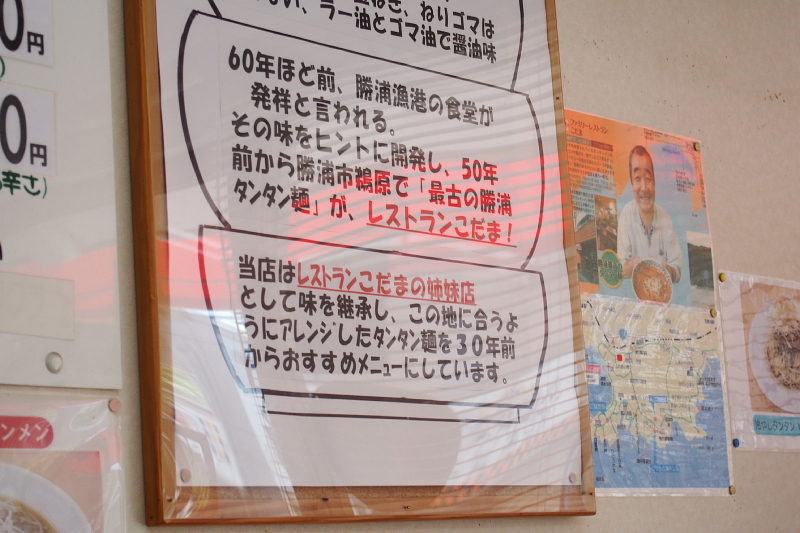 ねりゴマは
い、ラー油とゴマ油で醤油味
60年ほど前、勝浦漁港の食堂が
発祥と言われる。
その味をヒントに開発し、50年
前から勝浦市鵜原で「最古の勝浦
タンタン麺」が、レストランこだま！
当店はレストランこだまの姉妹店
として味を継承し、この地に合うよ
うにアレンジしたタンタン麺を３０年前
からおすすめメニューにしています。
0円
0円
辛さ)
ンメン
ファミリーレストラン
こだま